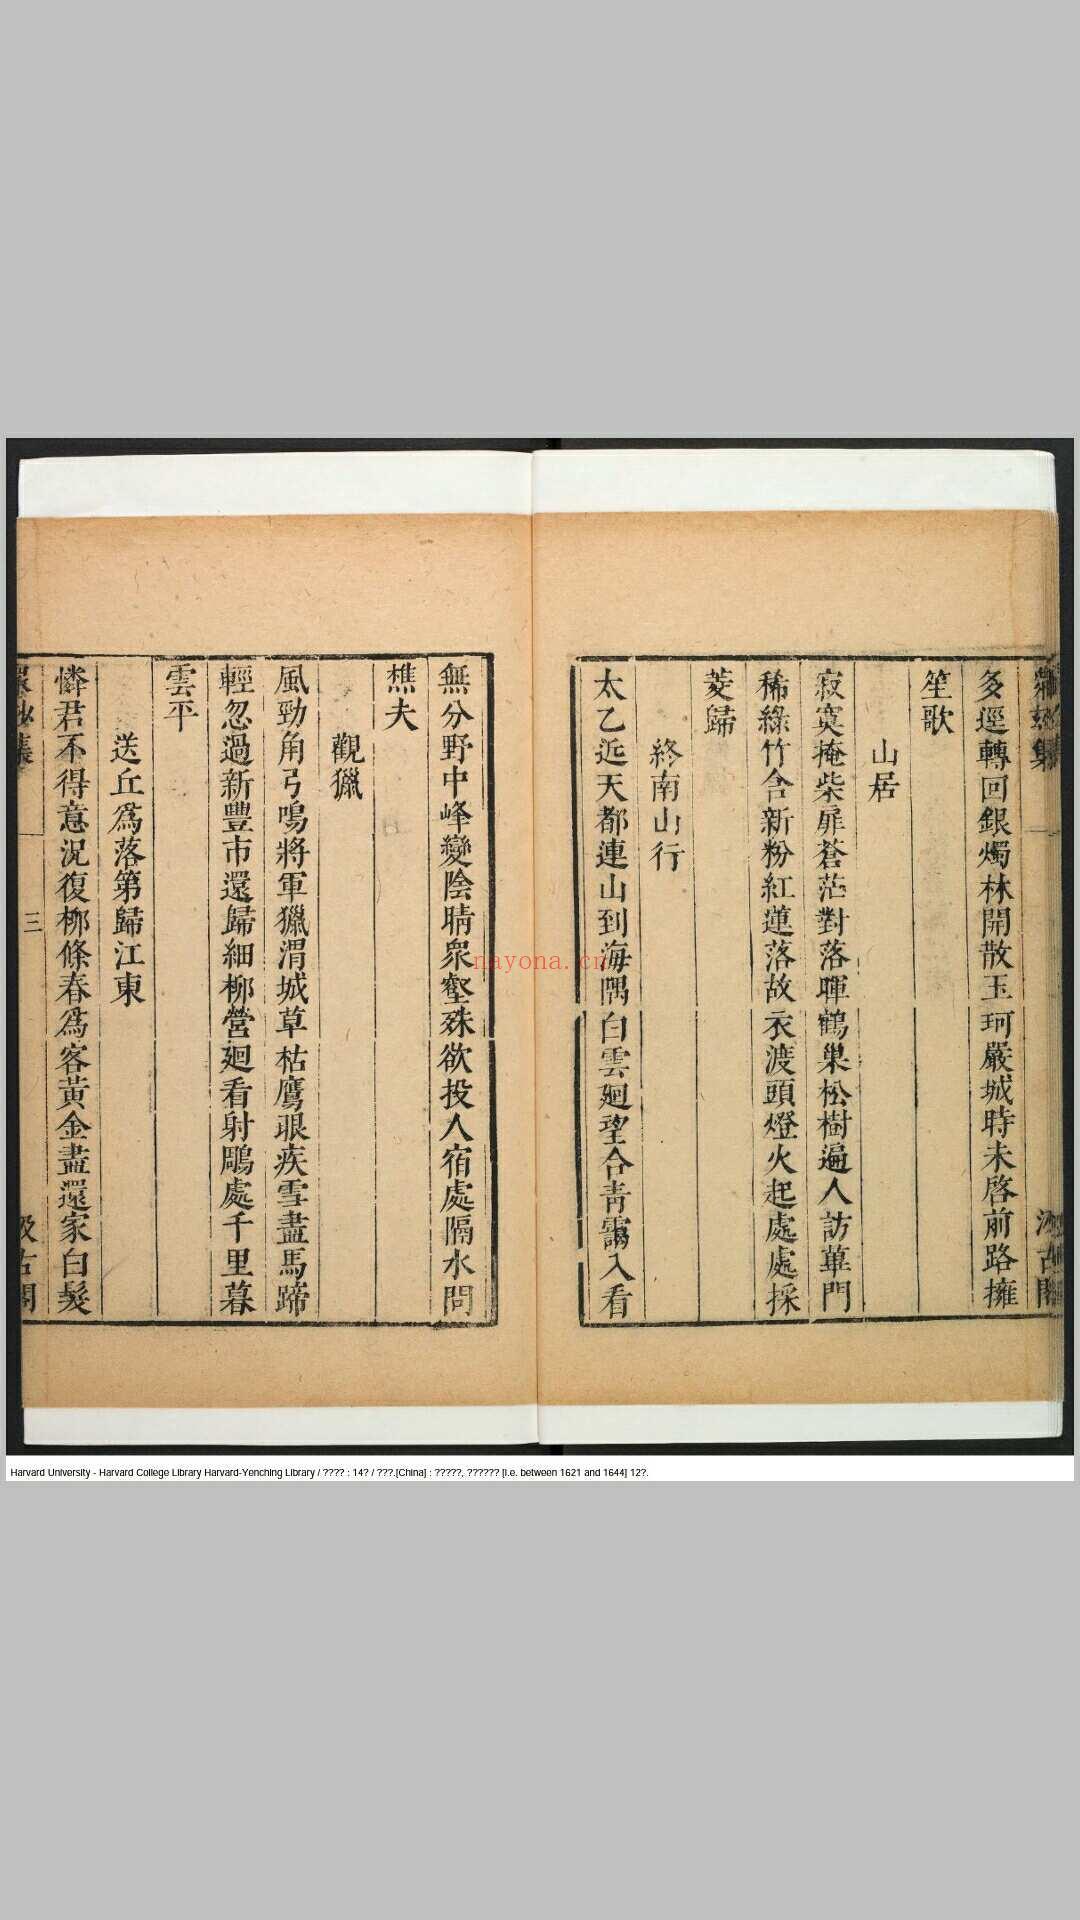 多逕轉回銀燭林開散玉珂嚴城時未啓前路擁
笙歌
山居
寂寞掩柴扉蒼茫對落暉鶴巢松樹遍人訪蓽門
稀綠竹含新粉紅蓮落故衣渡頭燈火起處處採
菱歸
終南山行
太乙近天都連山到海隅白雲廻望合青靄入看
無分野中峰變陰晴衆壑殊欲投人宿處隔水問
樵夫
觀獵
風勁角弓鳴將軍獵渭城草枯鷹眼疾雪盡馬蹄
輕忽過新豐市還歸細柳營廻看射鵰處千里暮
雲平
送丘爲落第歸江東
憐君不得意況復柳條春爲客黃金盡還家白髮
三
汲古閣
nayona.cn
Harvard University - Harvard College Library Harvard-Yenching Library / ???? : 14? / ???.[China] : ?????, ?????? [i.e. between 1621 and 1644] 12?.